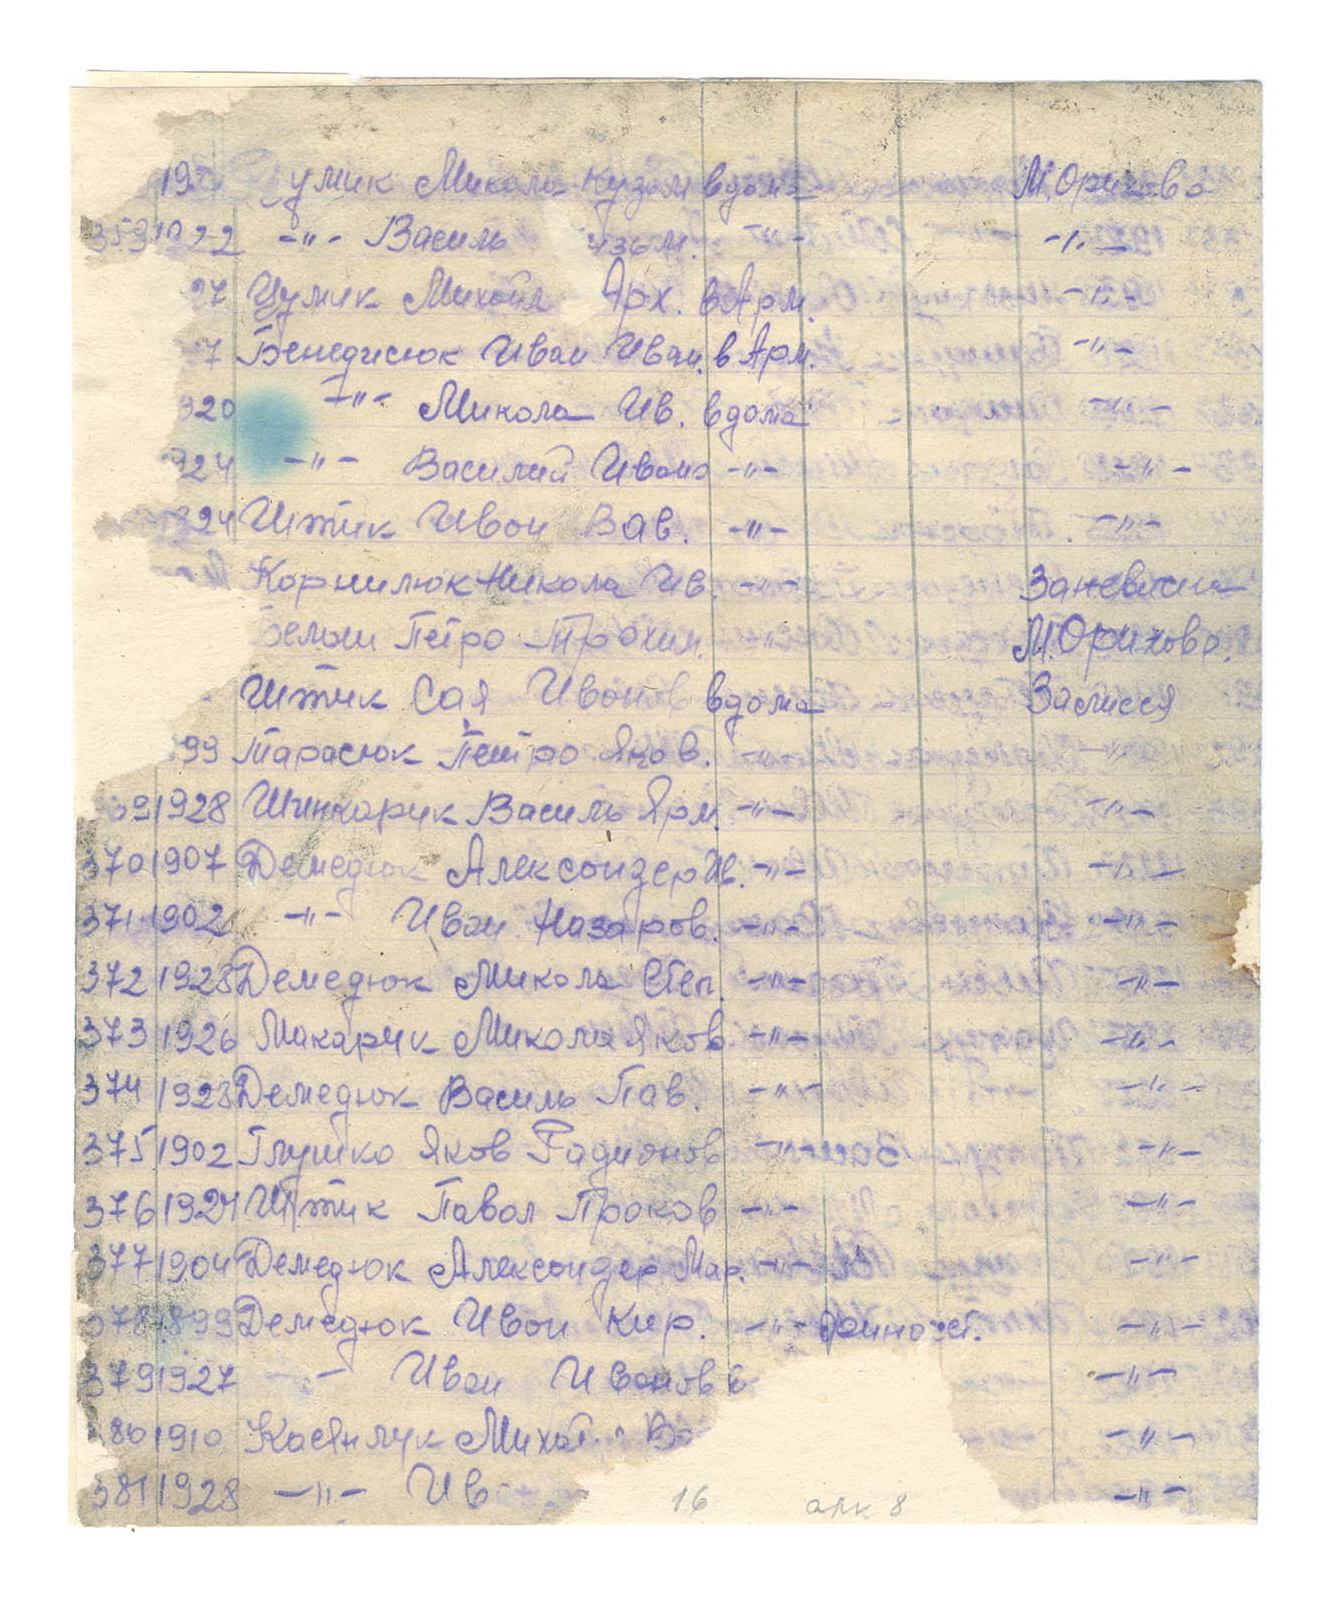 19 умик Микола Кузьм вдома М. Орихово
359 1922 -"- Василь узьм. -"- -"-
27 Цумик Михайл Арх. в Арм. -"-
7 Бенедисюк Иван Иван. в Арм. -"-
920 -"- Микола Ив. вдома -"-
924 -"- Василий Ивано -"- -"-
924 Штик Иван Вав. -"- -"-
Корнилюк Никола Ив. -"-
Петро Трохим. -"- М. Орихово.
Штик Сая Иванов вдома Залисся
99 Тарасюк Петро Яков. -"-
69 1928 Шинкарук Василь Ярм. -"- -"-
370 1907 Демедюк Александер Ив. -"- -"-
371 1902 -"- Иван Назаров. -"- -"-
372 1928 Демедюк Микола Степ. -"- -"-
373 1926 Макарук Микола Яков -"- -"-
374 1923 Демедюк Василь Пав. -"- -"-
375 1902 Глушко Яков Радионов -"- -"-
376 1924 Штик Павол Проков -"- -"-
377 1904 Демедюк Александер Мар. -"- -"-
378 899 Демедюк Иван Кир. -"- -"-
379 1927 -"- Иван Иванов -"-
380 1910 Касянчук Миха Ва -"-
381 1928 -"- Ив -"-
16 арк 8